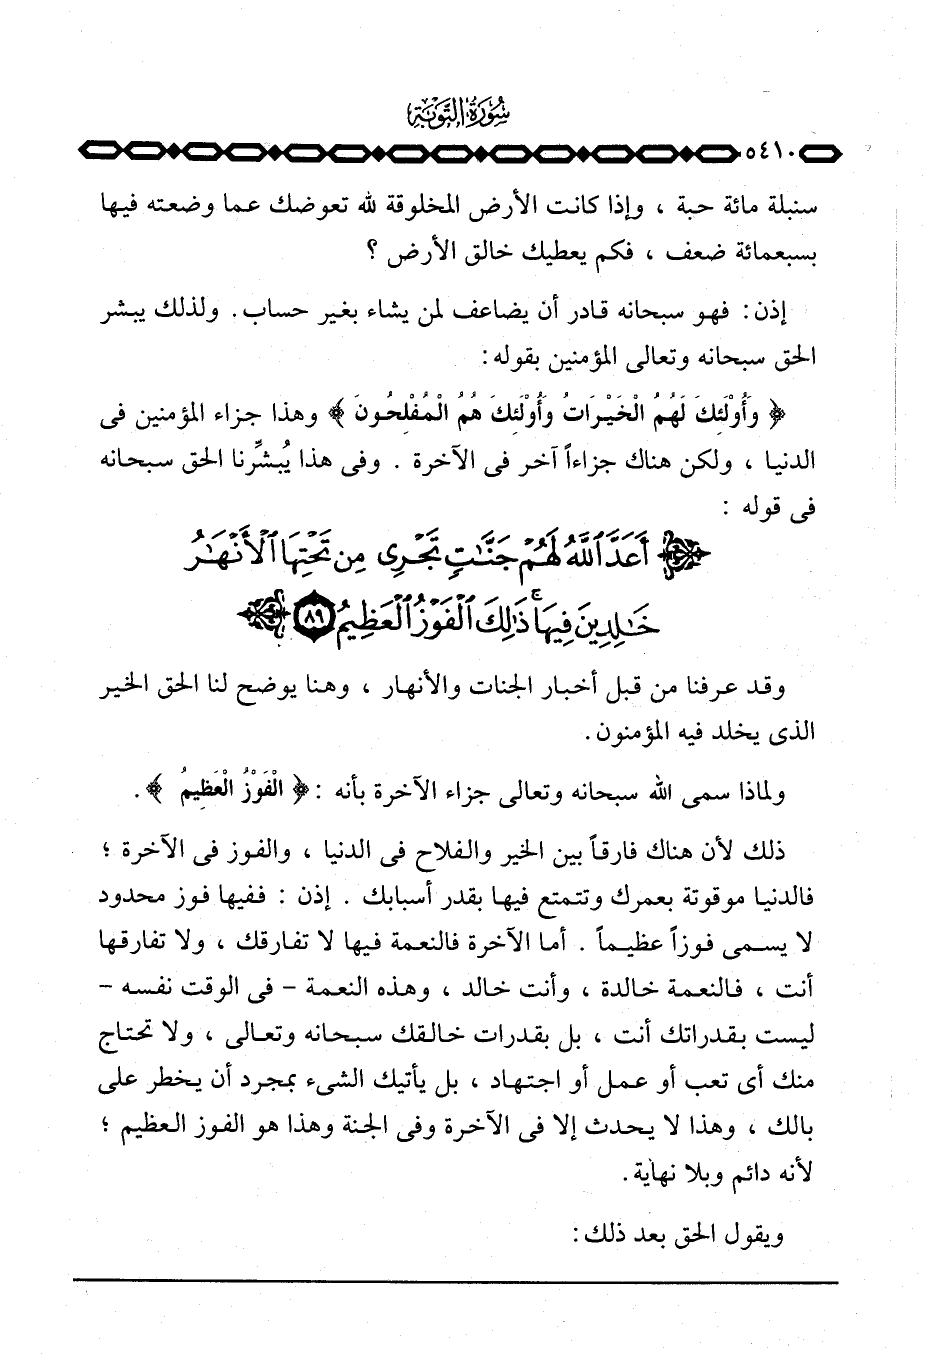 سُورَةُ التَّوْبَةِ
٥٤١٠
سنبلة مائة حبة ، وإذا كانت الأرض المخلوقة لله تعوضك عما وضعته فيها
بسبعمائة ضعف ، فكم يعطيك خالق الأرض ؟
إذن: فهو سبحانه قادر أن يضاعف لمن يشاء بغير حساب. ولذلك يبشر
الحق سبحانه وتعالى المؤمنين بقوله:
﴿ وَأُولَٰئِكَ لَهُمُ الْخَيْرَاتُ وَأُولَٰئِكَ هُمُ الْمُفْلِحُونَ ﴾ وهذا جزاء المؤمنين فى
الدنيا ، ولكن هناك جزاءاً آخر فى الآخرة . وفى هذا يُبشِّرنا الحق سبحانه
فى قوله :
﴿ أَعَدَّ ٱللَّهُ لَهُمْ جَنَّٰتٍ تَجْرِى مِن تَحْتِهَا ٱلْأَنْهَٰرُ
خَٰلِدِينَ فِيهَا ۚ ذَٰلِكَ ٱلْفَوْزُ ٱلْعَظِيمُ ٨٩ ﴾
وقد عرفنا من قبل أخبار الجنات والأنهار ، وهنا يوضح لنا الحق الخير
الذى يخلد فيه المؤمنون.
ولماذا سمى الله سبحانه وتعالى جزاء الآخرة بأنه :﴿ الْفَوْزُ الْعَظِيمُ ﴾ .
ذلك لأن هناك فارقاً بين الخير والفلاح فى الدنيا ، والفوز فى الآخرة ؛
فالدنيا موقوتة بعمرك وتتمتع فيها بقدر أسبابك . إذن : ففيها فوز محدود
لا يسمى فوزاً عظيماً . أما الآخرة فالنعمة فيها لا تفارقك ، ولا تفارقها
أنت ، فالنعمة خالدة ، وأنت خالد ، وهذه النعمة - فى الوقت نفسه -
ليست بقدراتك أنت ، بل بقدرات خالقك سبحانه وتعالى ، ولا تحتاج
منك أى تعب أو عمل أو اجتهاد ، بل يأتيك الشىء بمجرد أن يخطر على
بالك ، وهذا لا يحدث إلا فى الآخرة وفى الجنة وهذا هو الفوز العظيم ؛
لأنه دائم وبلا نهاية.
ويقول الحق بعد ذلك: